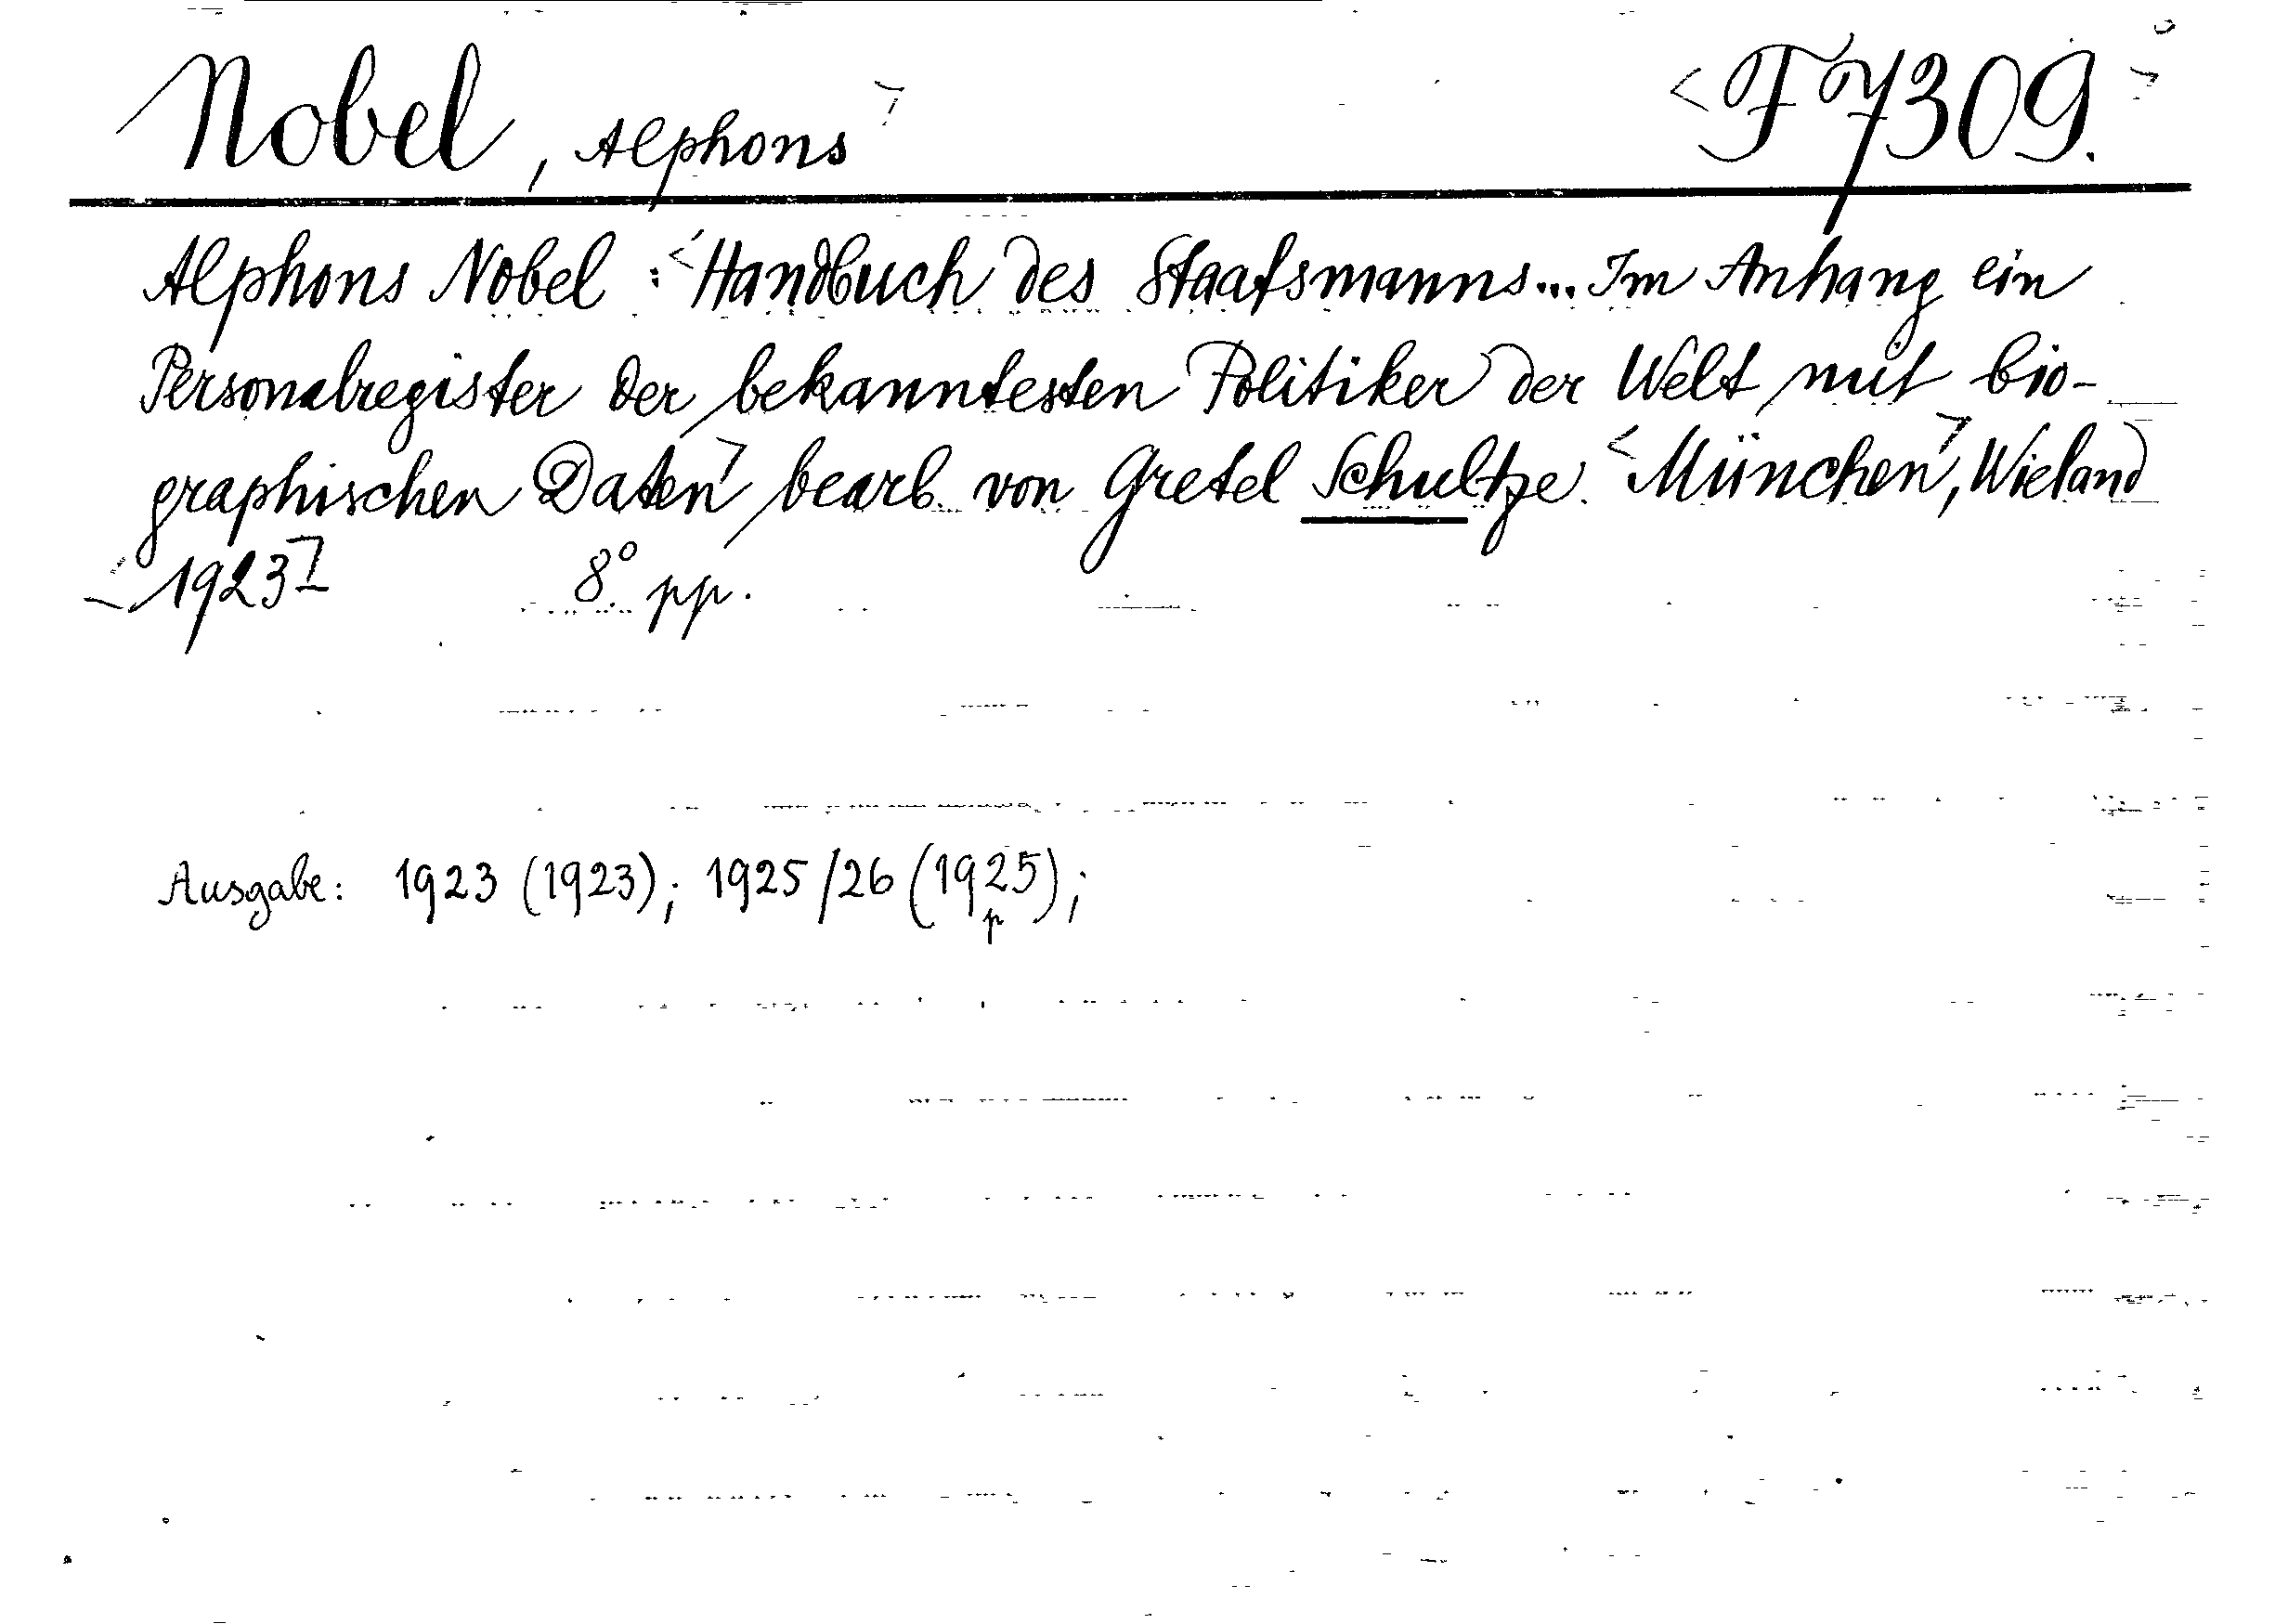 Nobel, Alphons <F 7309.>
Alphons Nobel : <Handbuch des Staatsmanns... Im Anhang ein
Personalregister der bekanntesten Politiker der Welt mit bio-
graphischen Daten> bearb. von Gretel Schultze. <München>, Wieland
<1923> 8° pp.
Ausgabe: 1923 (1923); 1925/26 (1925);
p